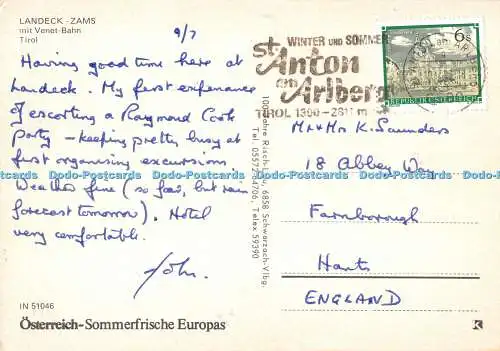 LANDECK - ZAMS
mit Venet-Bahn
Tirol
9/7
Having good time here at
Landeck. My first experience
of escorting a Raymond Cook
party - keeping pretty busy at
first organising excursions.
Weather fine (so far, but rain
forecast tomorrow). Hotel
very comfortable.
John.
IN 51046
Österreich-Sommerfrische Europas
Risch-Lau, 6858 Schwarzach-Vlbg.
Telex 59390
WINTER UND SOMMER
St. Anton
am Arlberg
TIROL 1300-2811 m
6 S
REPUBLIK ÖSTERREICH
Mr & Mrs K. Saunders
18 Abbey Way
Farnborough
Hants
ENGLAND
Dodo-Postcards Dodo-Postcards Dodo-Postcards Dodo-Postcards